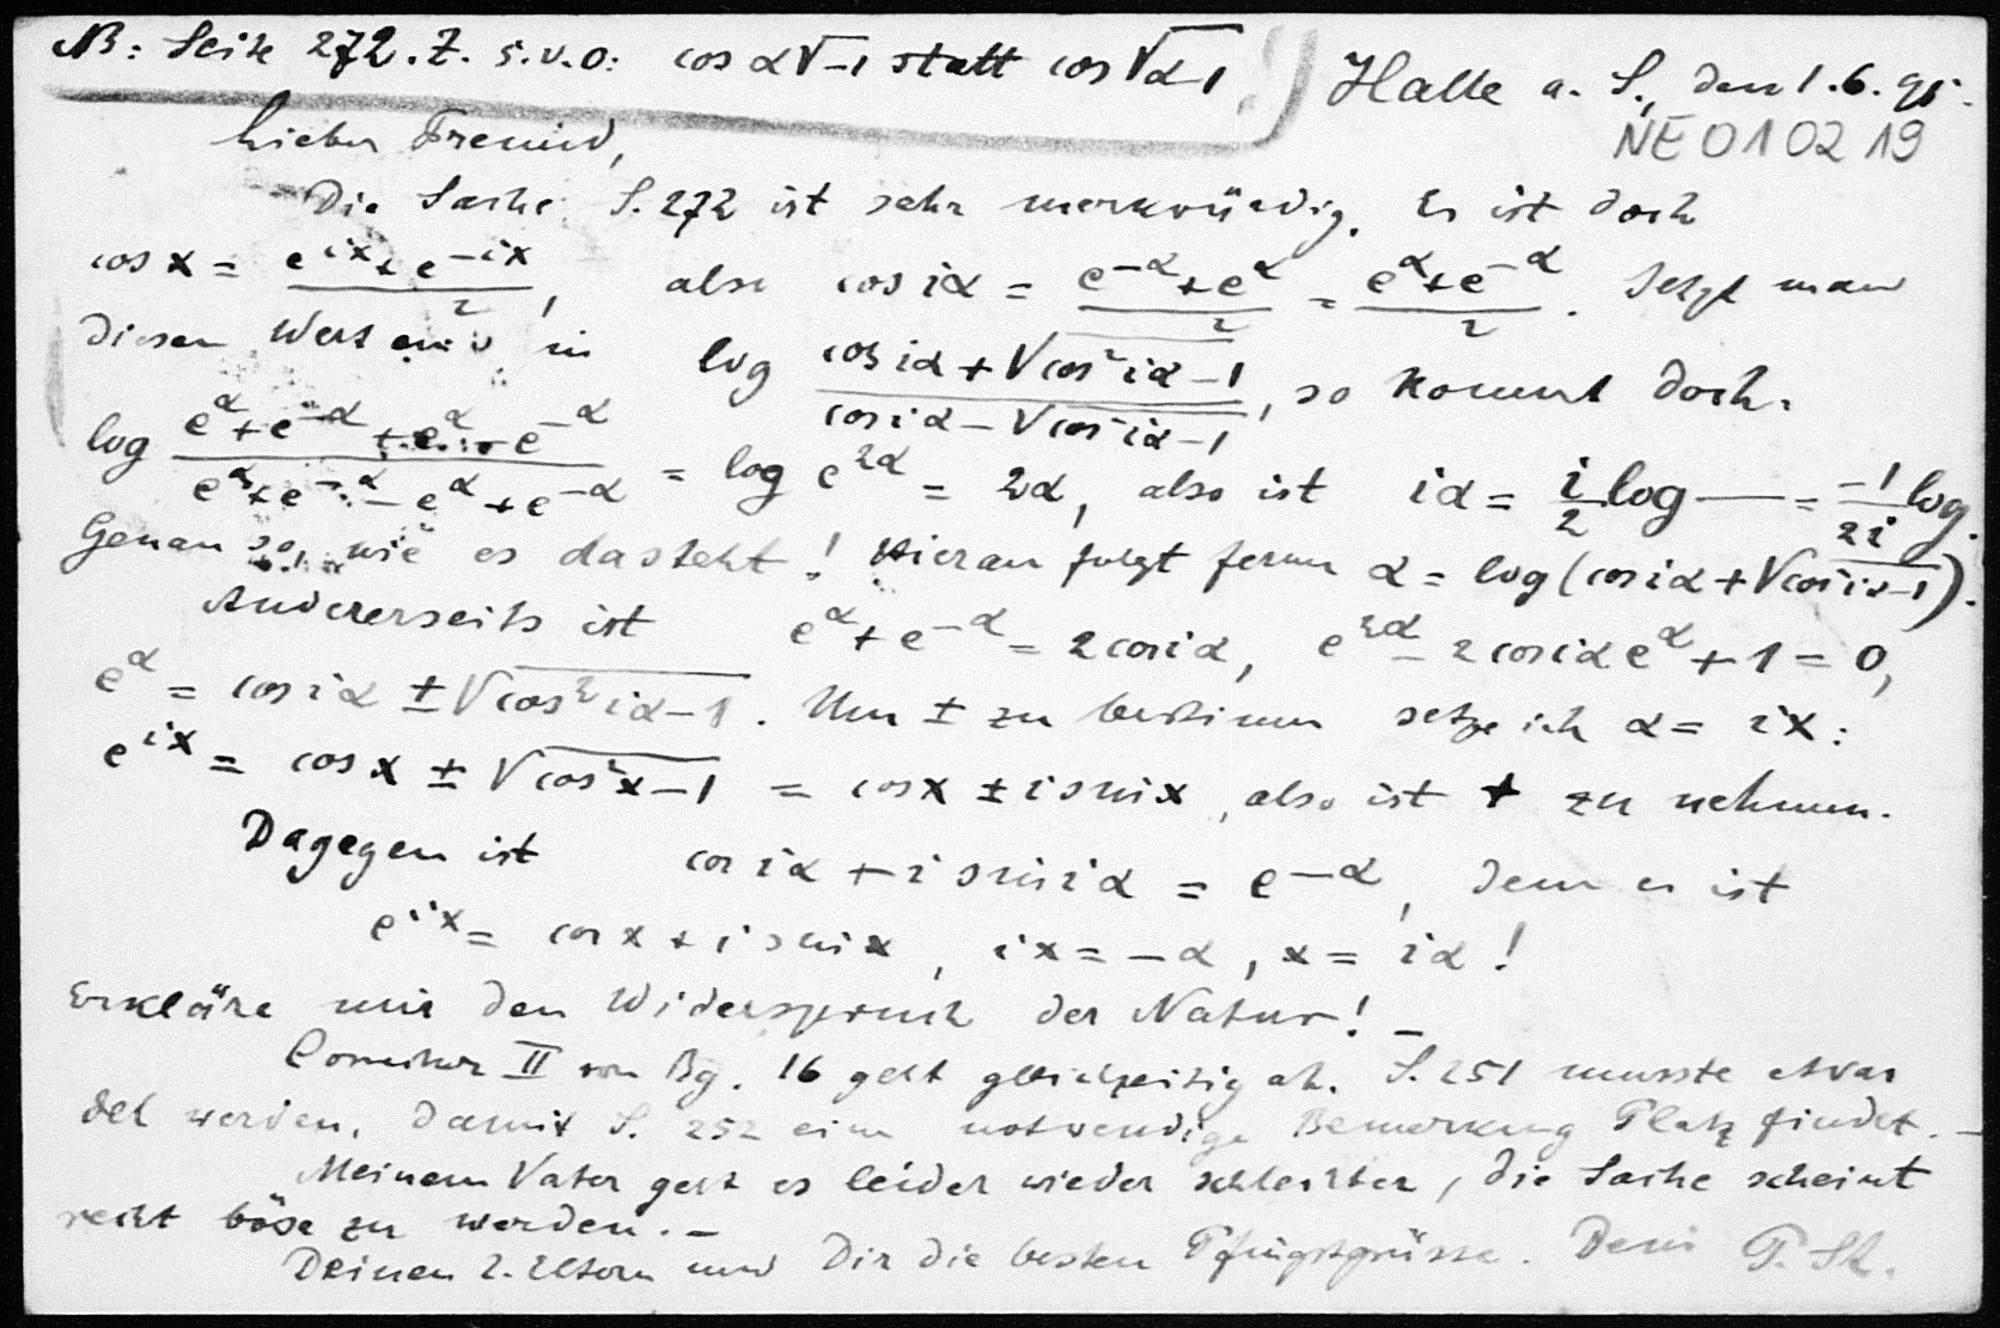 NB: Seite 272. Z. 5. v. o: cos α√−1 statt cos √α−1 !
Halle a. S., den 1. 6. 95.
NE 01 02 19
Lieber Freund,
Die Sache S. 272 ist sehr merkwürdig. Es ist doch
cos x = (e^{ix} + e^{−ix})/2, also cos iα = (e^{−α} + e^{α})/2 = (e^{α} + e^{−α})/2. Setzt man
diesen Wert ein in log (cos iα + √(cos² iα − 1))/(cos iα − √(cos² iα − 1)), so kommt doch:
log (e^{α} + e^{−α} + e^{α} − e^{−α})/(e^{α} + e^{−α} − e^{α} + e^{−α}) = log e^{2α} = 2α, also ist iα = i/2 log — = −1/2i log.
Genau so, wie es dasteht! Hieran folgt ferner α = log (cos iα + √(cos² iα − 1)).
Andererseits ist e^{α} + e^{−α} = 2 cos iα, e^{2α} − 2 cos iα e^{α} + 1 = 0,
e^{α} = cos iα ± √(cos² iα − 1). Um ± zu bestimmen setze ich α = ix:
e^{ix} = cos x ± √(cos² x − 1) = cos x ± i sin x, also ist + zu nehmen.
Dagegen ist cos iα + i sin iα = e^{−α}, denn es ist
e^{ix} = cos x + i sin x, ix = −α, x = iα!
Erkläre mir den Widerspruch der Natur! –
Correktur II von Bg. 16 geht gleichzeitig ab. S. 251 musste etwas
del werden, damit S. 252 eine notwendige Bemerkung Platz findet. –
Meinem Vater geht es leider wieder schlechter, die Sache scheint
recht böse zu werden. –
Deinen l. Eltern und Dir die besten Pfingstgrüsse. Dein P. St.